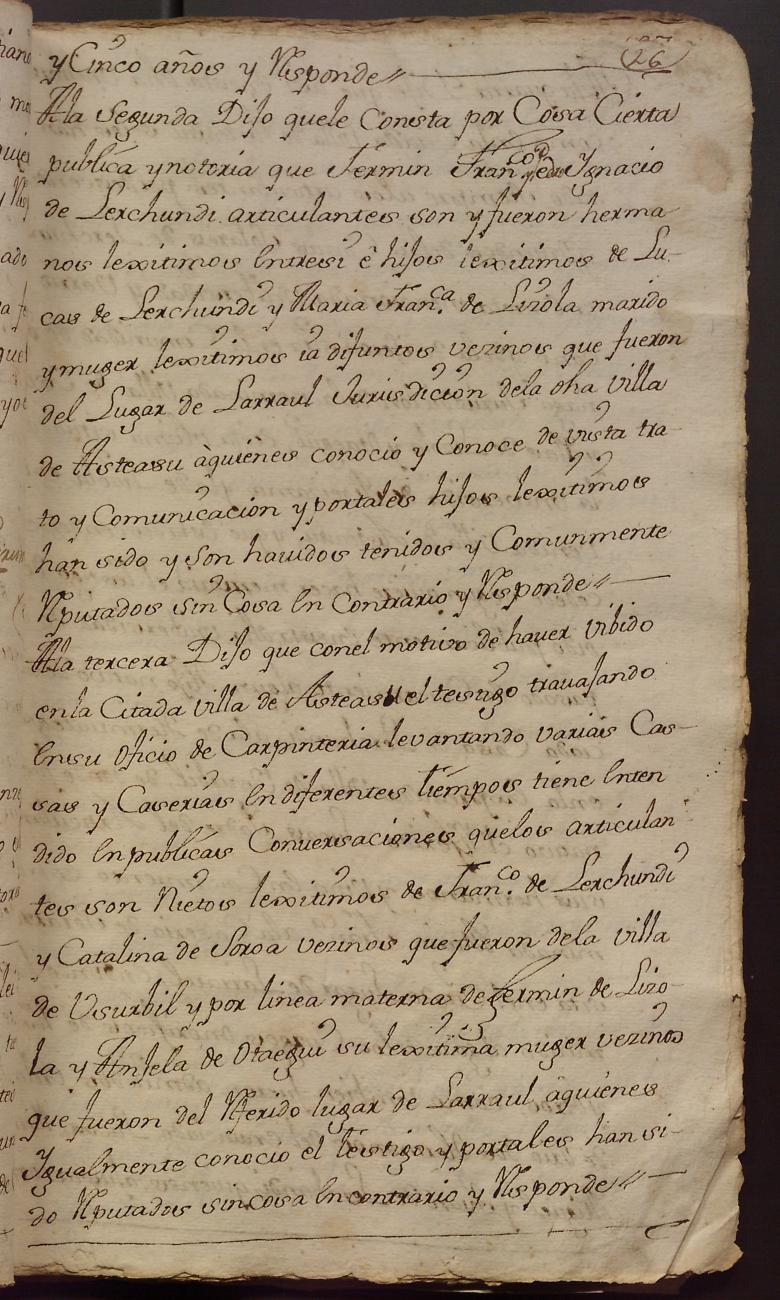 26
y Cinco años y Responde
Ala Segunda Dijo quele Consta por Cosa Cierta
publica y notoria que Fermin Fran.co Pedro Ygnacio
de Lerchundi articulantes son y fueron herma
nos lexitimos Entresi è hijos lexitimos de Lu-
cas de Lerchundi y Maria Fran.ca de Lizola marido
y muger lexitimos ia difuntos vezinos que fueron
del Lugar de Larraul Jurisdicion dela dha villa
de Asteasu àquienes conocio y Conoce de vista tra-
to y Comunicacion y portales hijos lexitimos
han sido y son havidos tenidos y Comunmente
Reputados sin Cosa En Contrario y Responde
Ala tercera Dijo que conel motivo de haver vibido
enla Citada villa de Asteasu el testigo travajando
Ensu Oficio de Carpinteria levantando varias Cas-
sas y Caserias En diferentes tiempos tiene Enten
dido En publicas Conversaciones quelos articulan
tes son Nietos lexitimos de Fran.co de Lerchundi
y Catalina de Soroa vezinos que fueron dela villa
de Usurbil y por linea materna de Fermin de Lizo-
la y Anjela de Otaegui su lexitima muger vezinos
que fueron del Referido lugar de Larraul àquienes
Ygualmente conocio el testigo y portales han si-
do Reputados sin cosa En contrario y Responde